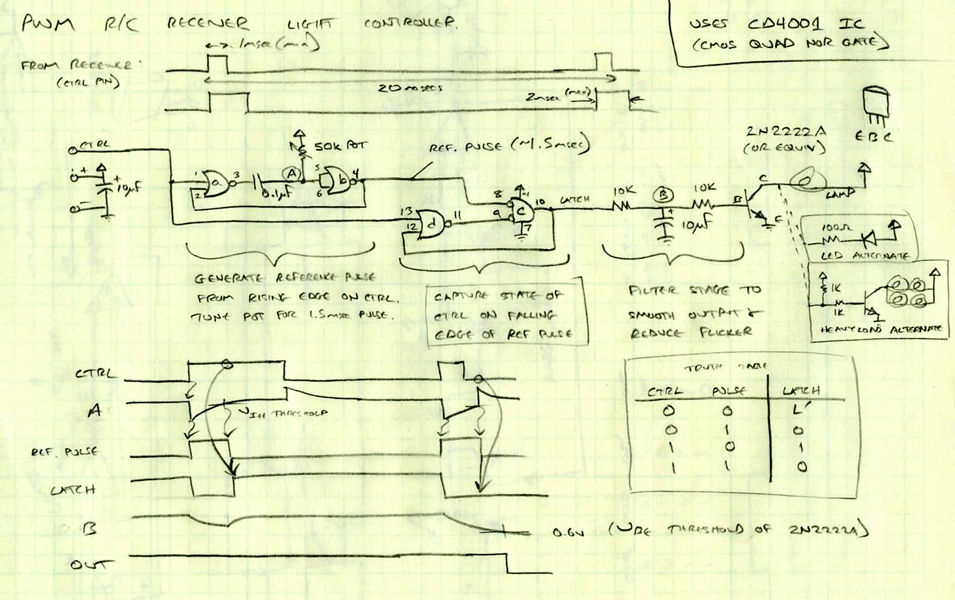 PWM R/C RECEIVER LIGHT CONTROLLER.
USES CD4001 IC
(CMOS QUAD NOR GATE)
1msec (min)
FROM RECEIVER:
(CTRL PIN)
20msecs
2msec (max)
E B C
2N2222A
(OR EQUIV)
CTRL
50K POT
REF. PULSE (~1.5msec)
+
+
10µF
-
1
2
a
3
0.1µF
A
5
6
b
4
13
12
d
11
8
9
C
14
10
7
LATCH
10K
B
+
10µF
10K
B
C
E
LAMP
100Ω
LED ALTERNATE
1K
1K
HEAVY LOAD ALTERNATE
GENERATE REFERENCE PULSE
FROM RISING EDGE ON CTRL.
TUNE POT FOR 1.5msec PULSE.
CAPTURE STATE OF
CTRL ON FALLING
EDGE OF REF PULSE
FILTER STAGE TO
SMOOTH OUTPUT &
REDUCE FLICKER
CTRL
A
VIH THRESHOLD
REF. PULSE
LATCH
B
0.6V (VBE THRESHOLD OF 2N2222A)
OUT
TRUTH TABLE
CTRL PULSE LATCH
0 0 L'
0 1 0
1 0 1
1 1 0